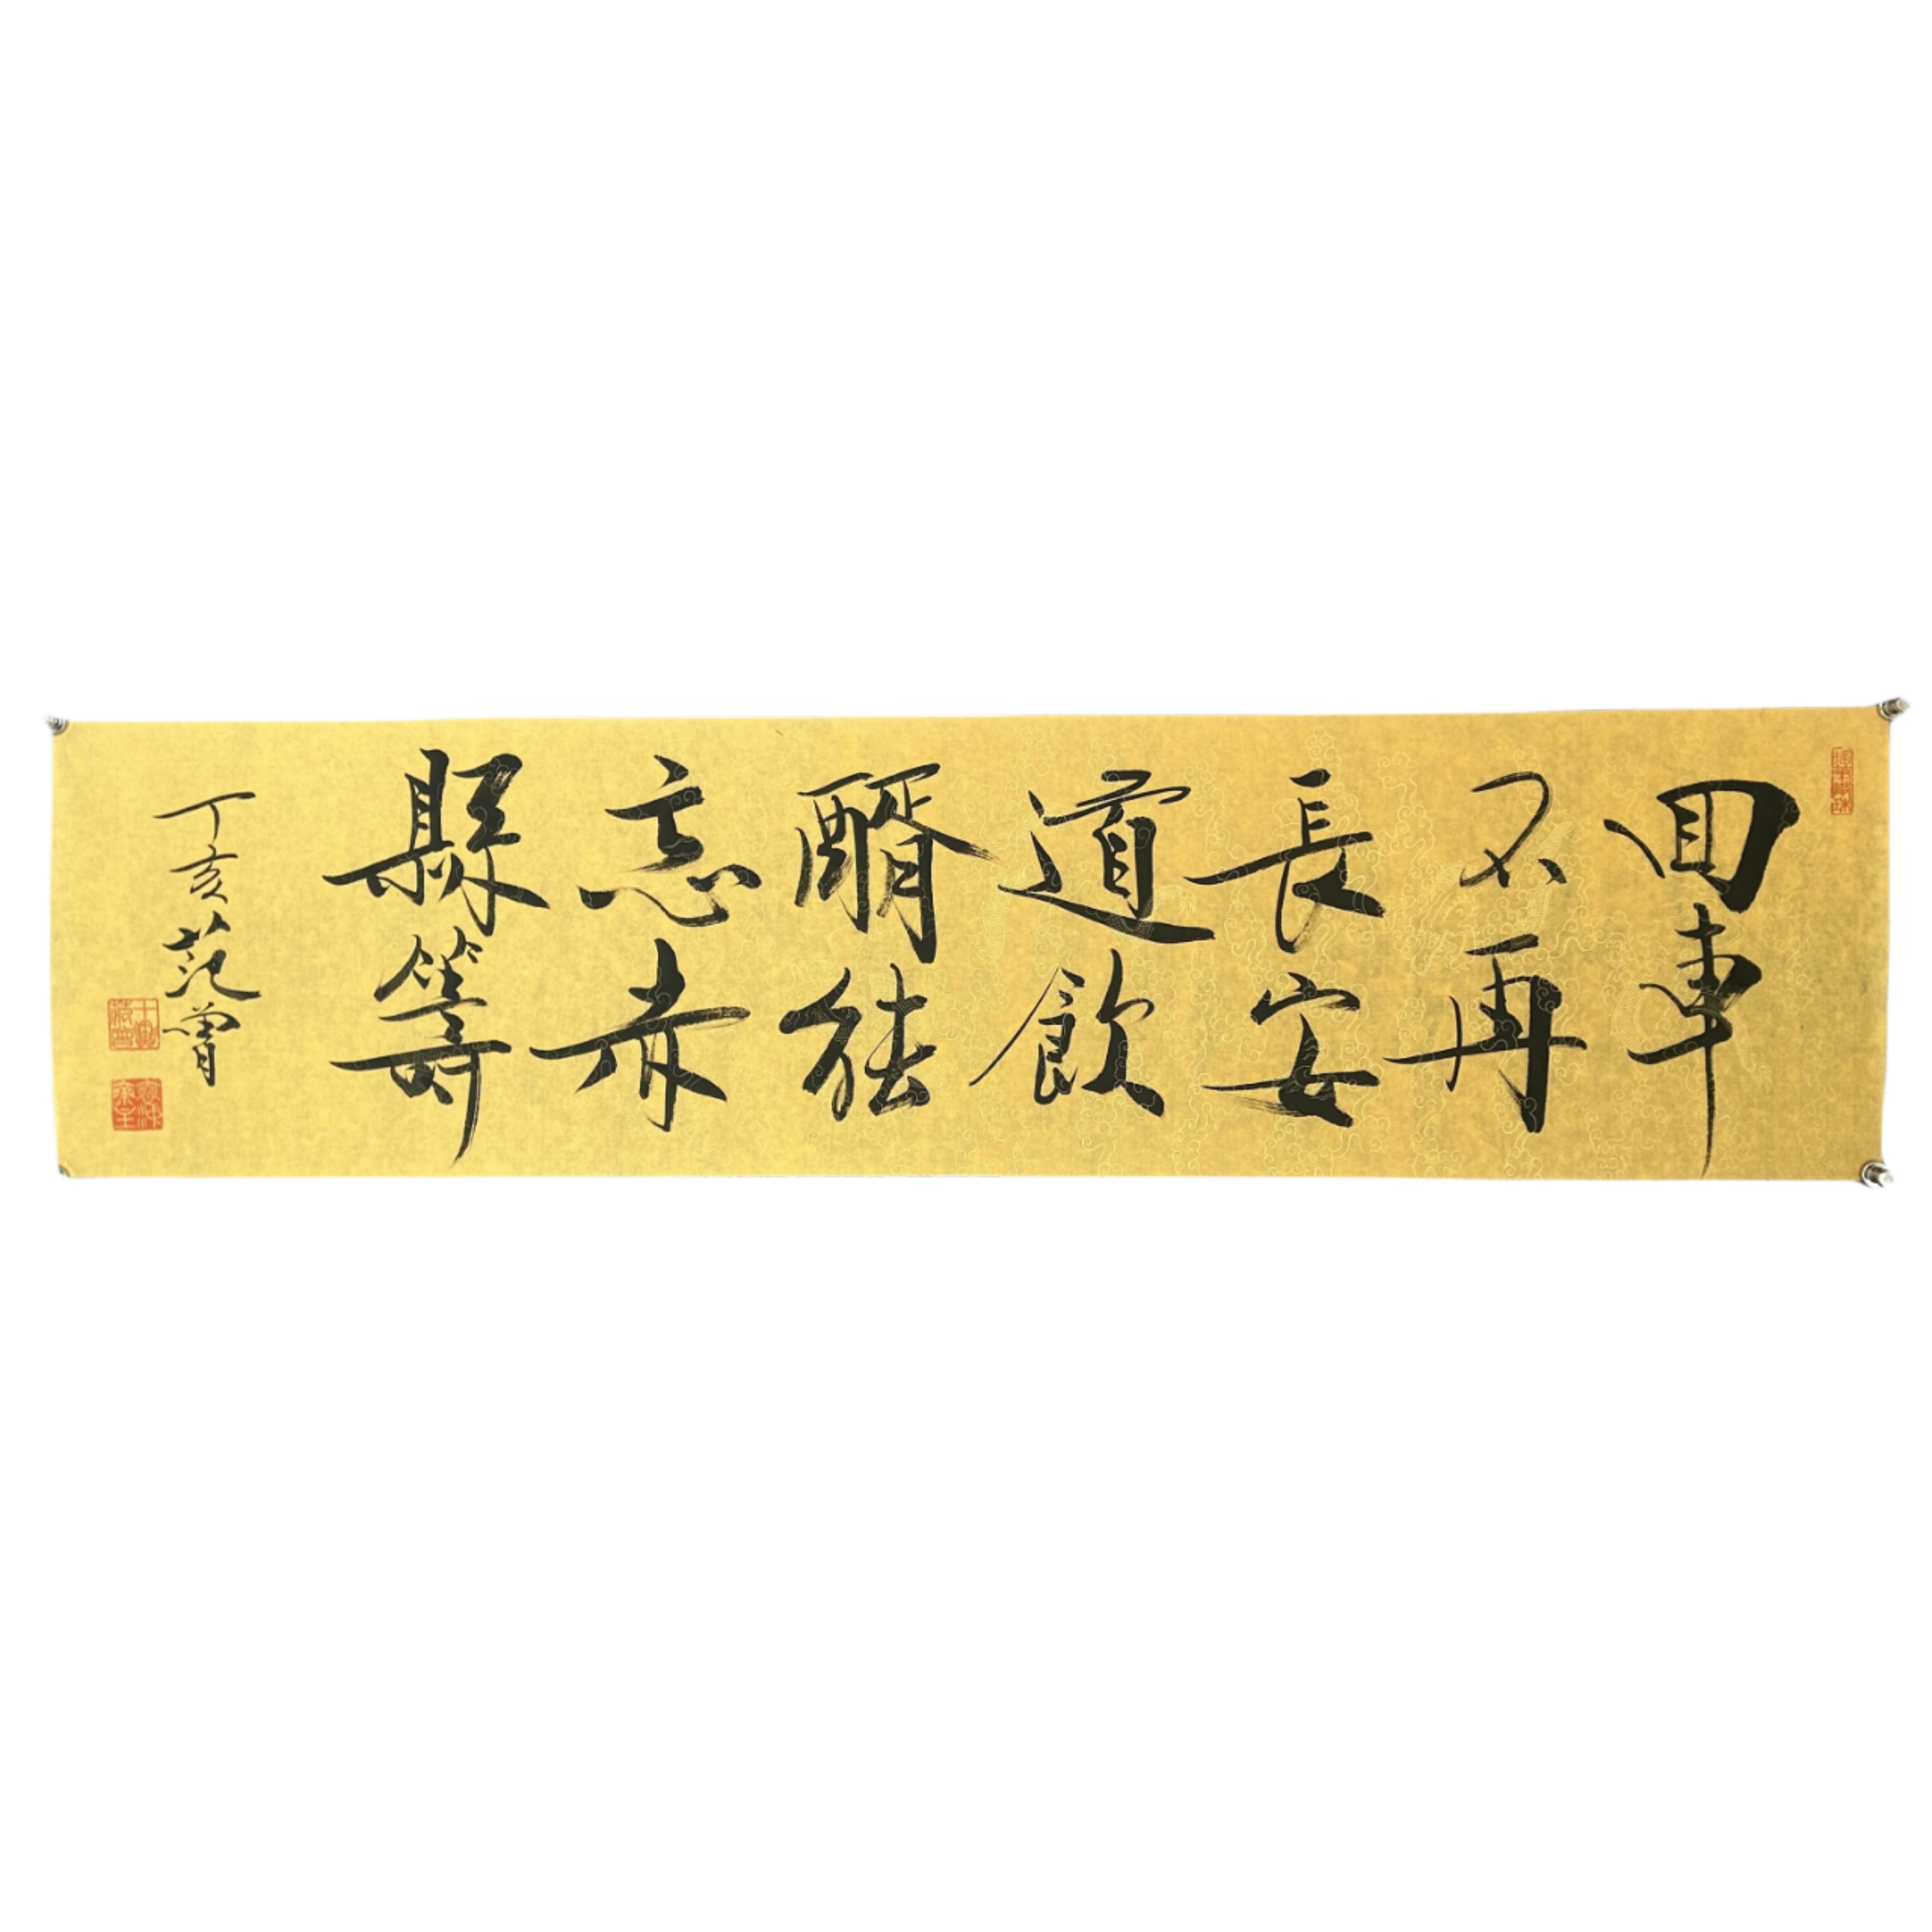 回車
不再
長安
道飲
醑能
忘赤
縣籌
丁亥范曾